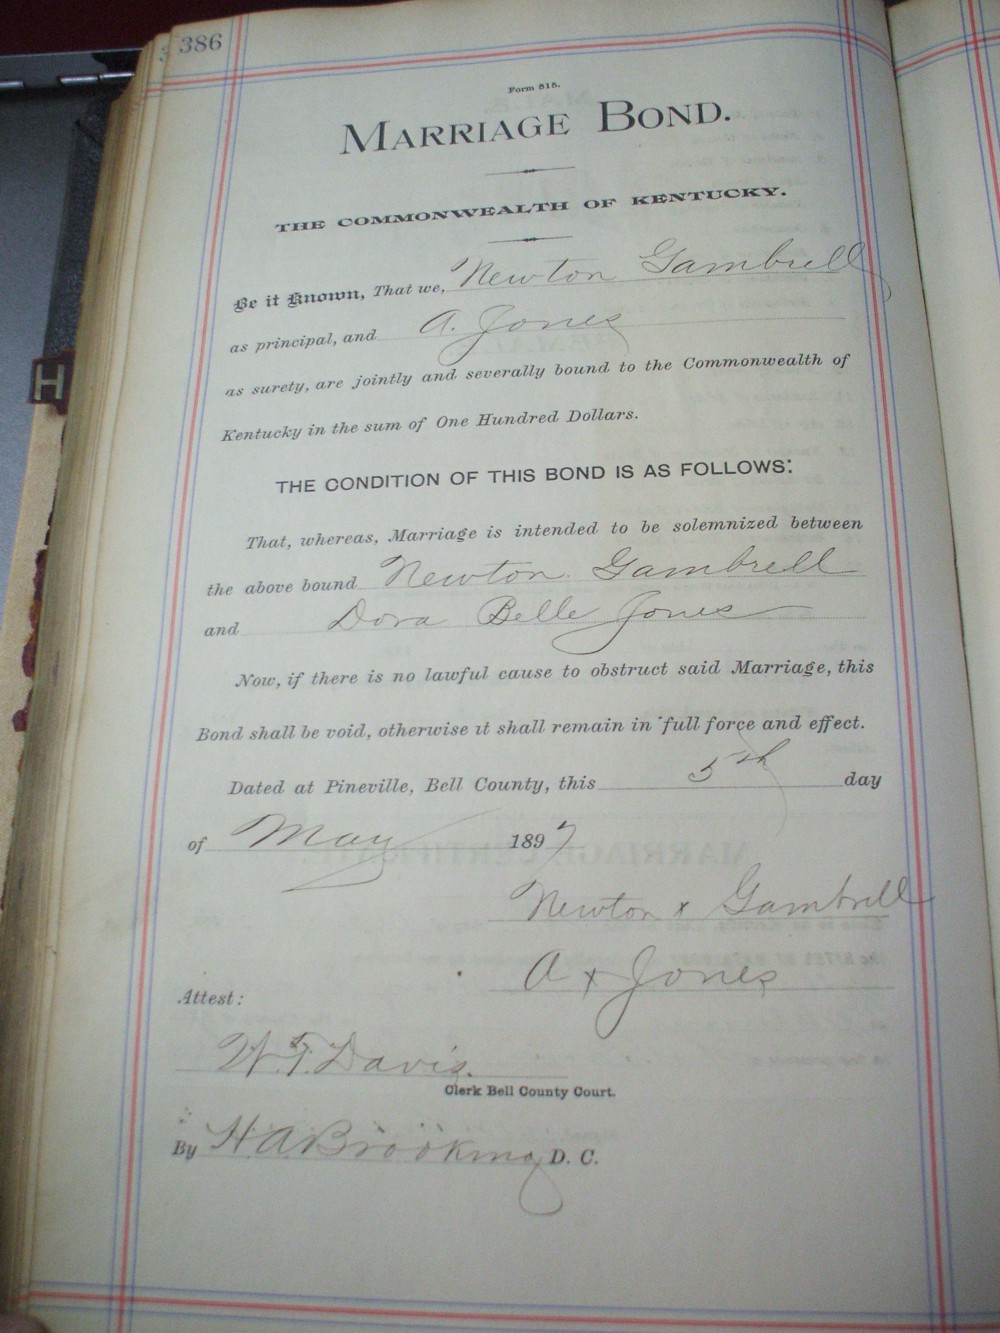 386
Form 515.
MARRIAGE BOND.
THE COMMONWEALTH OF KENTUCKY.
Be it Known, That we, Newton Gambrell
as principal, and A. Jones
as surety, are jointly and severally bound to the Commonwealth of
Kentucky in the sum of One Hundred Dollars.
THE CONDITION OF THIS BOND IS AS FOLLOWS:
That, whereas, Marriage is intended to be solemnized between
the above bound Newton Gambrell
and Dora Belle Jones
Now, if there is no lawful cause to obstruct said Marriage, this
Bond shall be void, otherwise it shall remain in full force and effect.
Dated at Pineville, Bell County, this 5th day
of May 1897
Newton x Gambrell
A x Jones
Attest:
W. T. Davis.
Clerk Bell County Court.
By H. A. Brooking D. C.
H